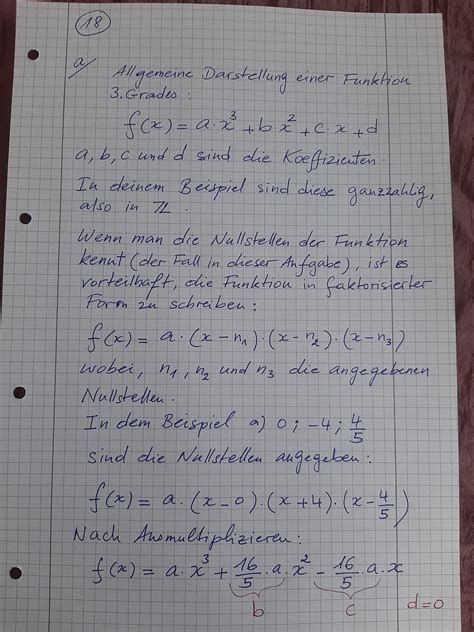 18
a)
Allgemeine Darstellung einer Funktion
3. Grades:
f(x) = a·x³ + b·x² + c·x + d
a, b, c und d sind die Koeffizienten.
In deinem Beispiel sind diese ganzzahlig,
also in ℤ.
Wenn man die Nullstellen der Funktion
kennt (der Fall in dieser Aufgabe), ist es
vorteilhaft, die Funktion in faktorisierter
Form zu schreiben:
f(x) = a·(x-n₁)·(x-n₂)·(x-n₃)
wobei, n₁, n₂ und n₃ die angegebenen
Nullstellen.
In dem Beispiel a) 0; -4; 4/5
sind die Nullstellen angegeben:
f(x) = a·(x-0)·(x+4)·(x-4/5)
Nach Ausmultiplizieren:
f(x) = a·x³ + 16/5·a·x² - 16/5·a·x
b c d=0